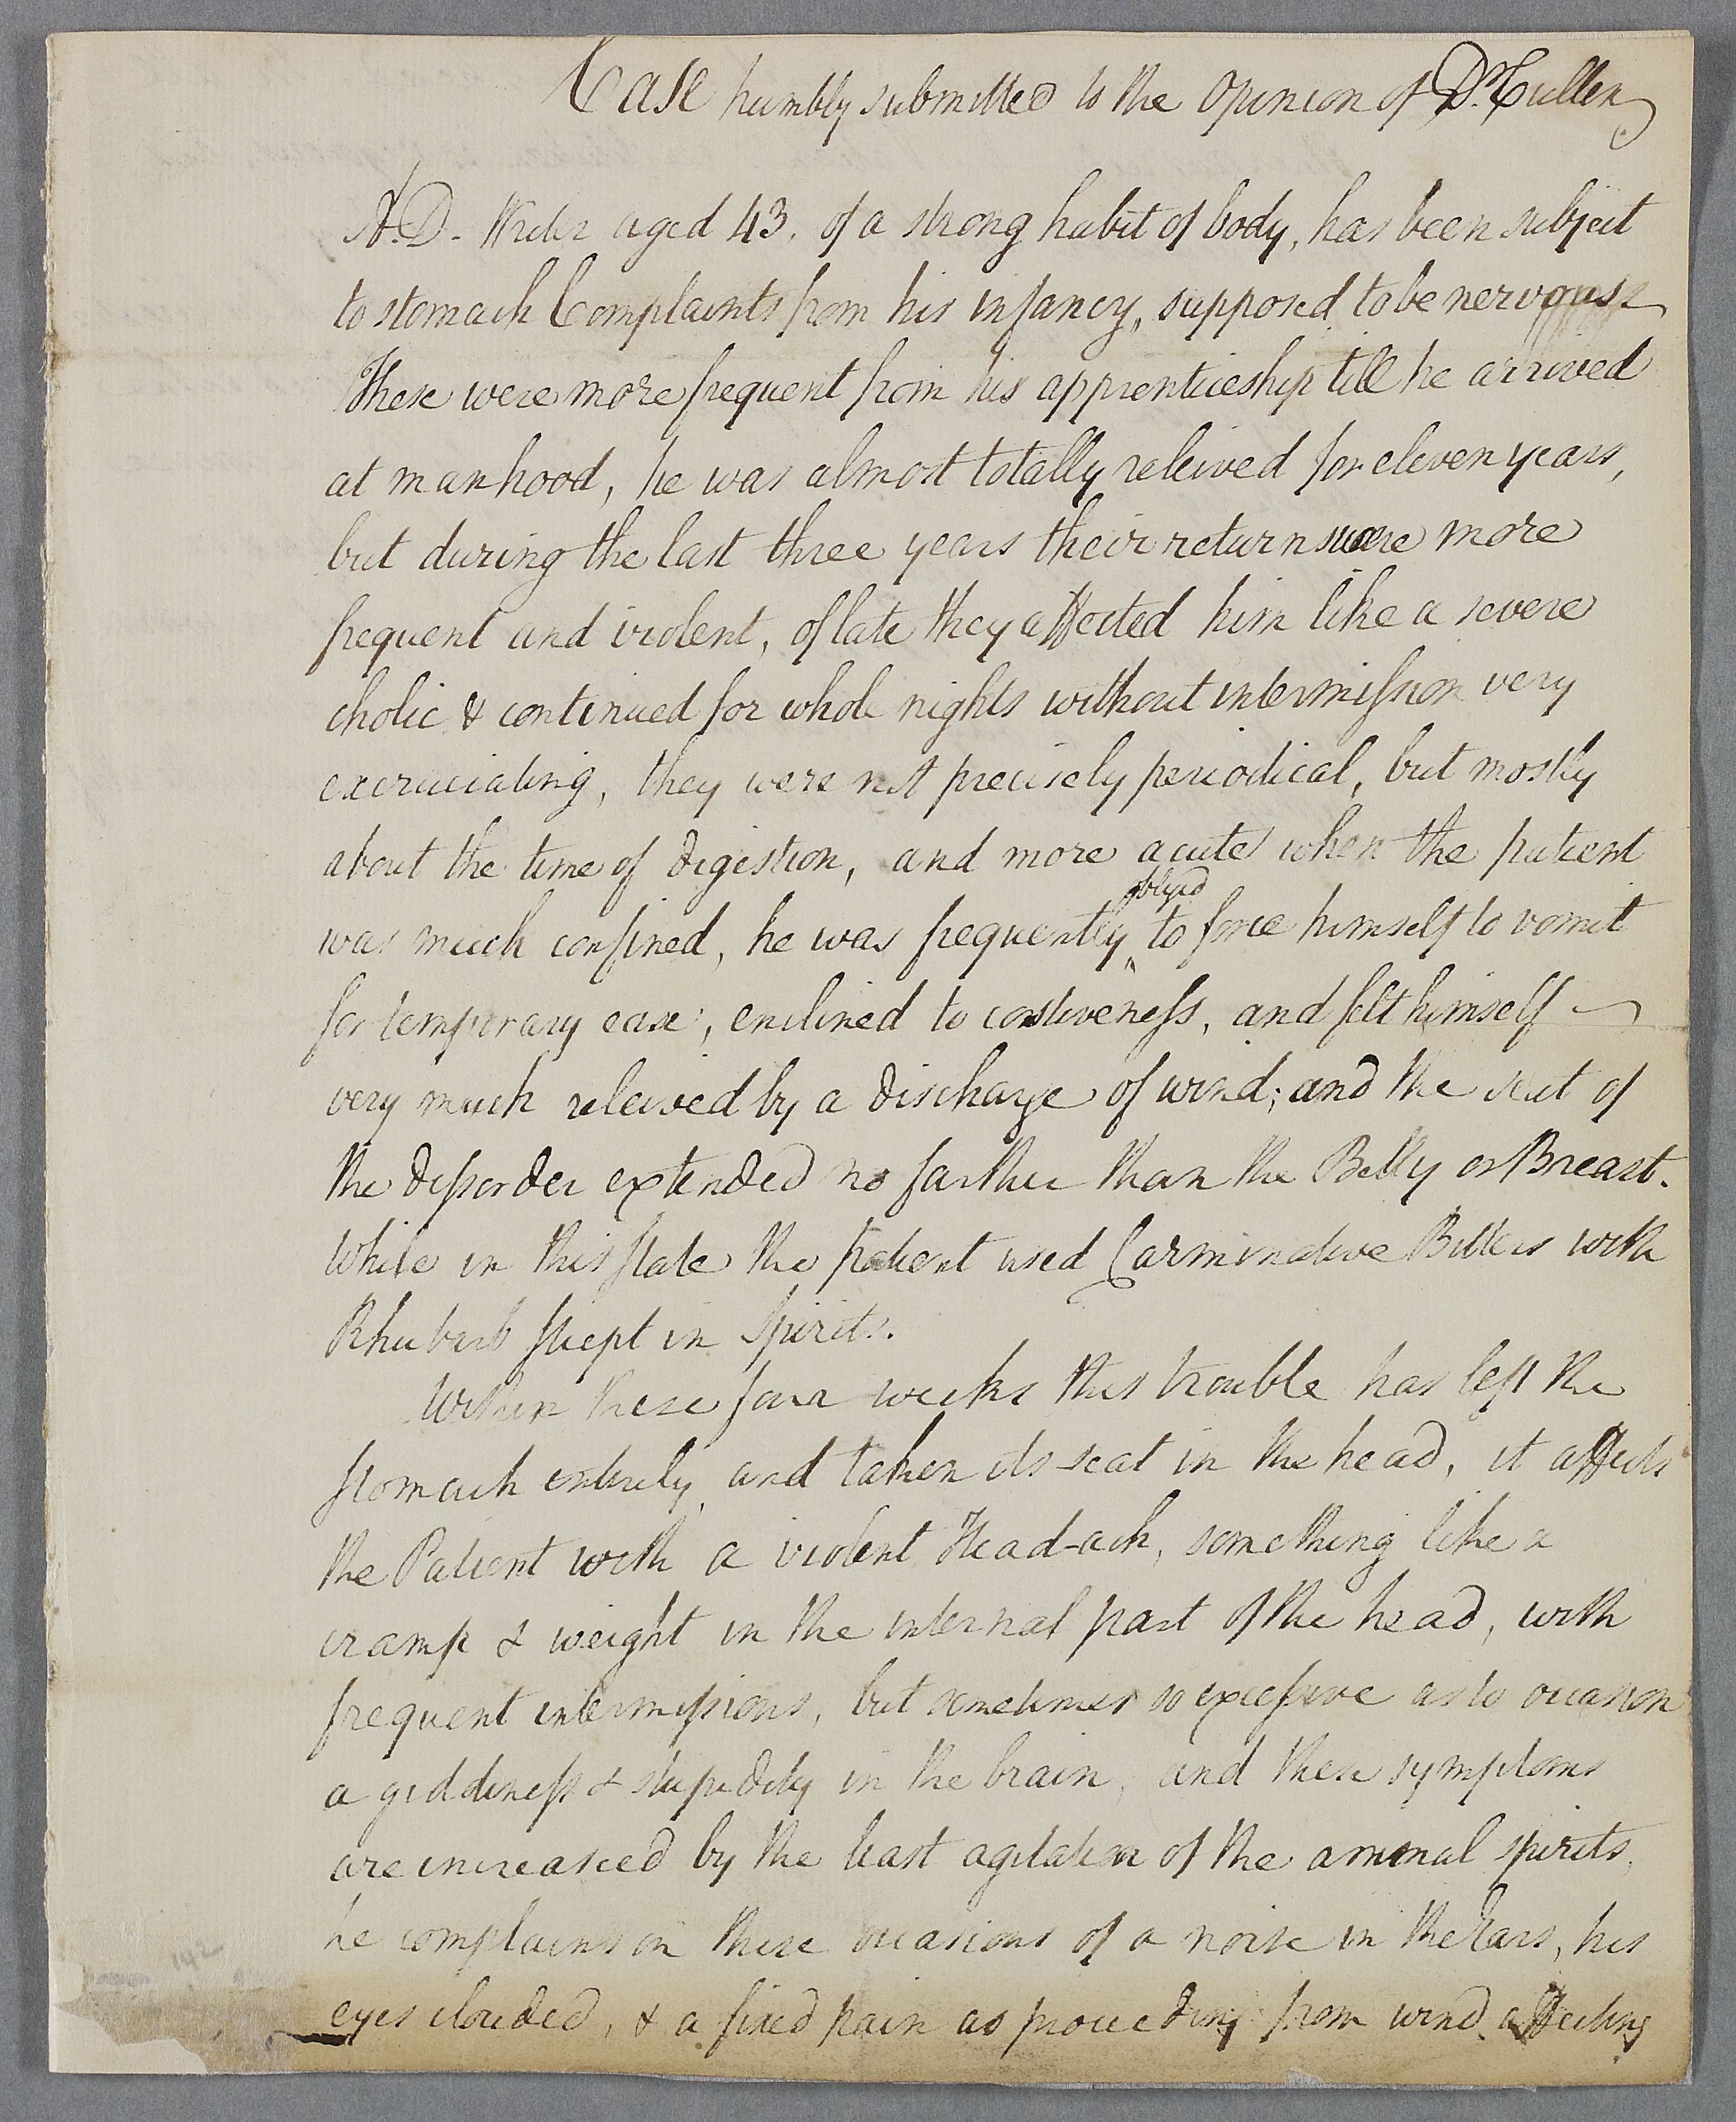 Case humbly submitted to the Opinion of Dr. Cullen
A.D. Writer aged 43. of a strong habit of body, has been subject
to stomach Complaints from his infancy, supposed to be nervous
These were more frequent from his apprenticeship till he arrived
at manhood, he was almost totally releived for eleven years,
but during the last three years their returns were more
frequent and violent, of late they affected him like a severe
cholic & continued for whole nights without intermission very
excruciating, they were not precisely periodical, but mostly
about the time of digestion, and more acute when the patient
was much confined, he was frequently obliged to force himself to vomit
for temporary ease, enclined to costiveness, and felt himself
very much releived by a discharge of wind; and the seat of
the dissorder extended no farther than the Belly or Breast.
While in this state the patient used Carminative Bitters with
Rhubarb stiept in Spirits.
Within these four weeks this trouble has left the
stomach entirely, and taken its seat in the head, it affects
the Patient with a violent Head-ach, something like a
cramp & weight in the internal part of the head, with
frequent intermissions, but sometimes so excessive as to occasion
a giddiness & stupidity in the brain, and these symptoms
are increased by the least agitation of the animal spirits,
he complains on these occasions of a noise in the Ears, his
eyes clouded, & a fixed pain as proceeding from wind affecting